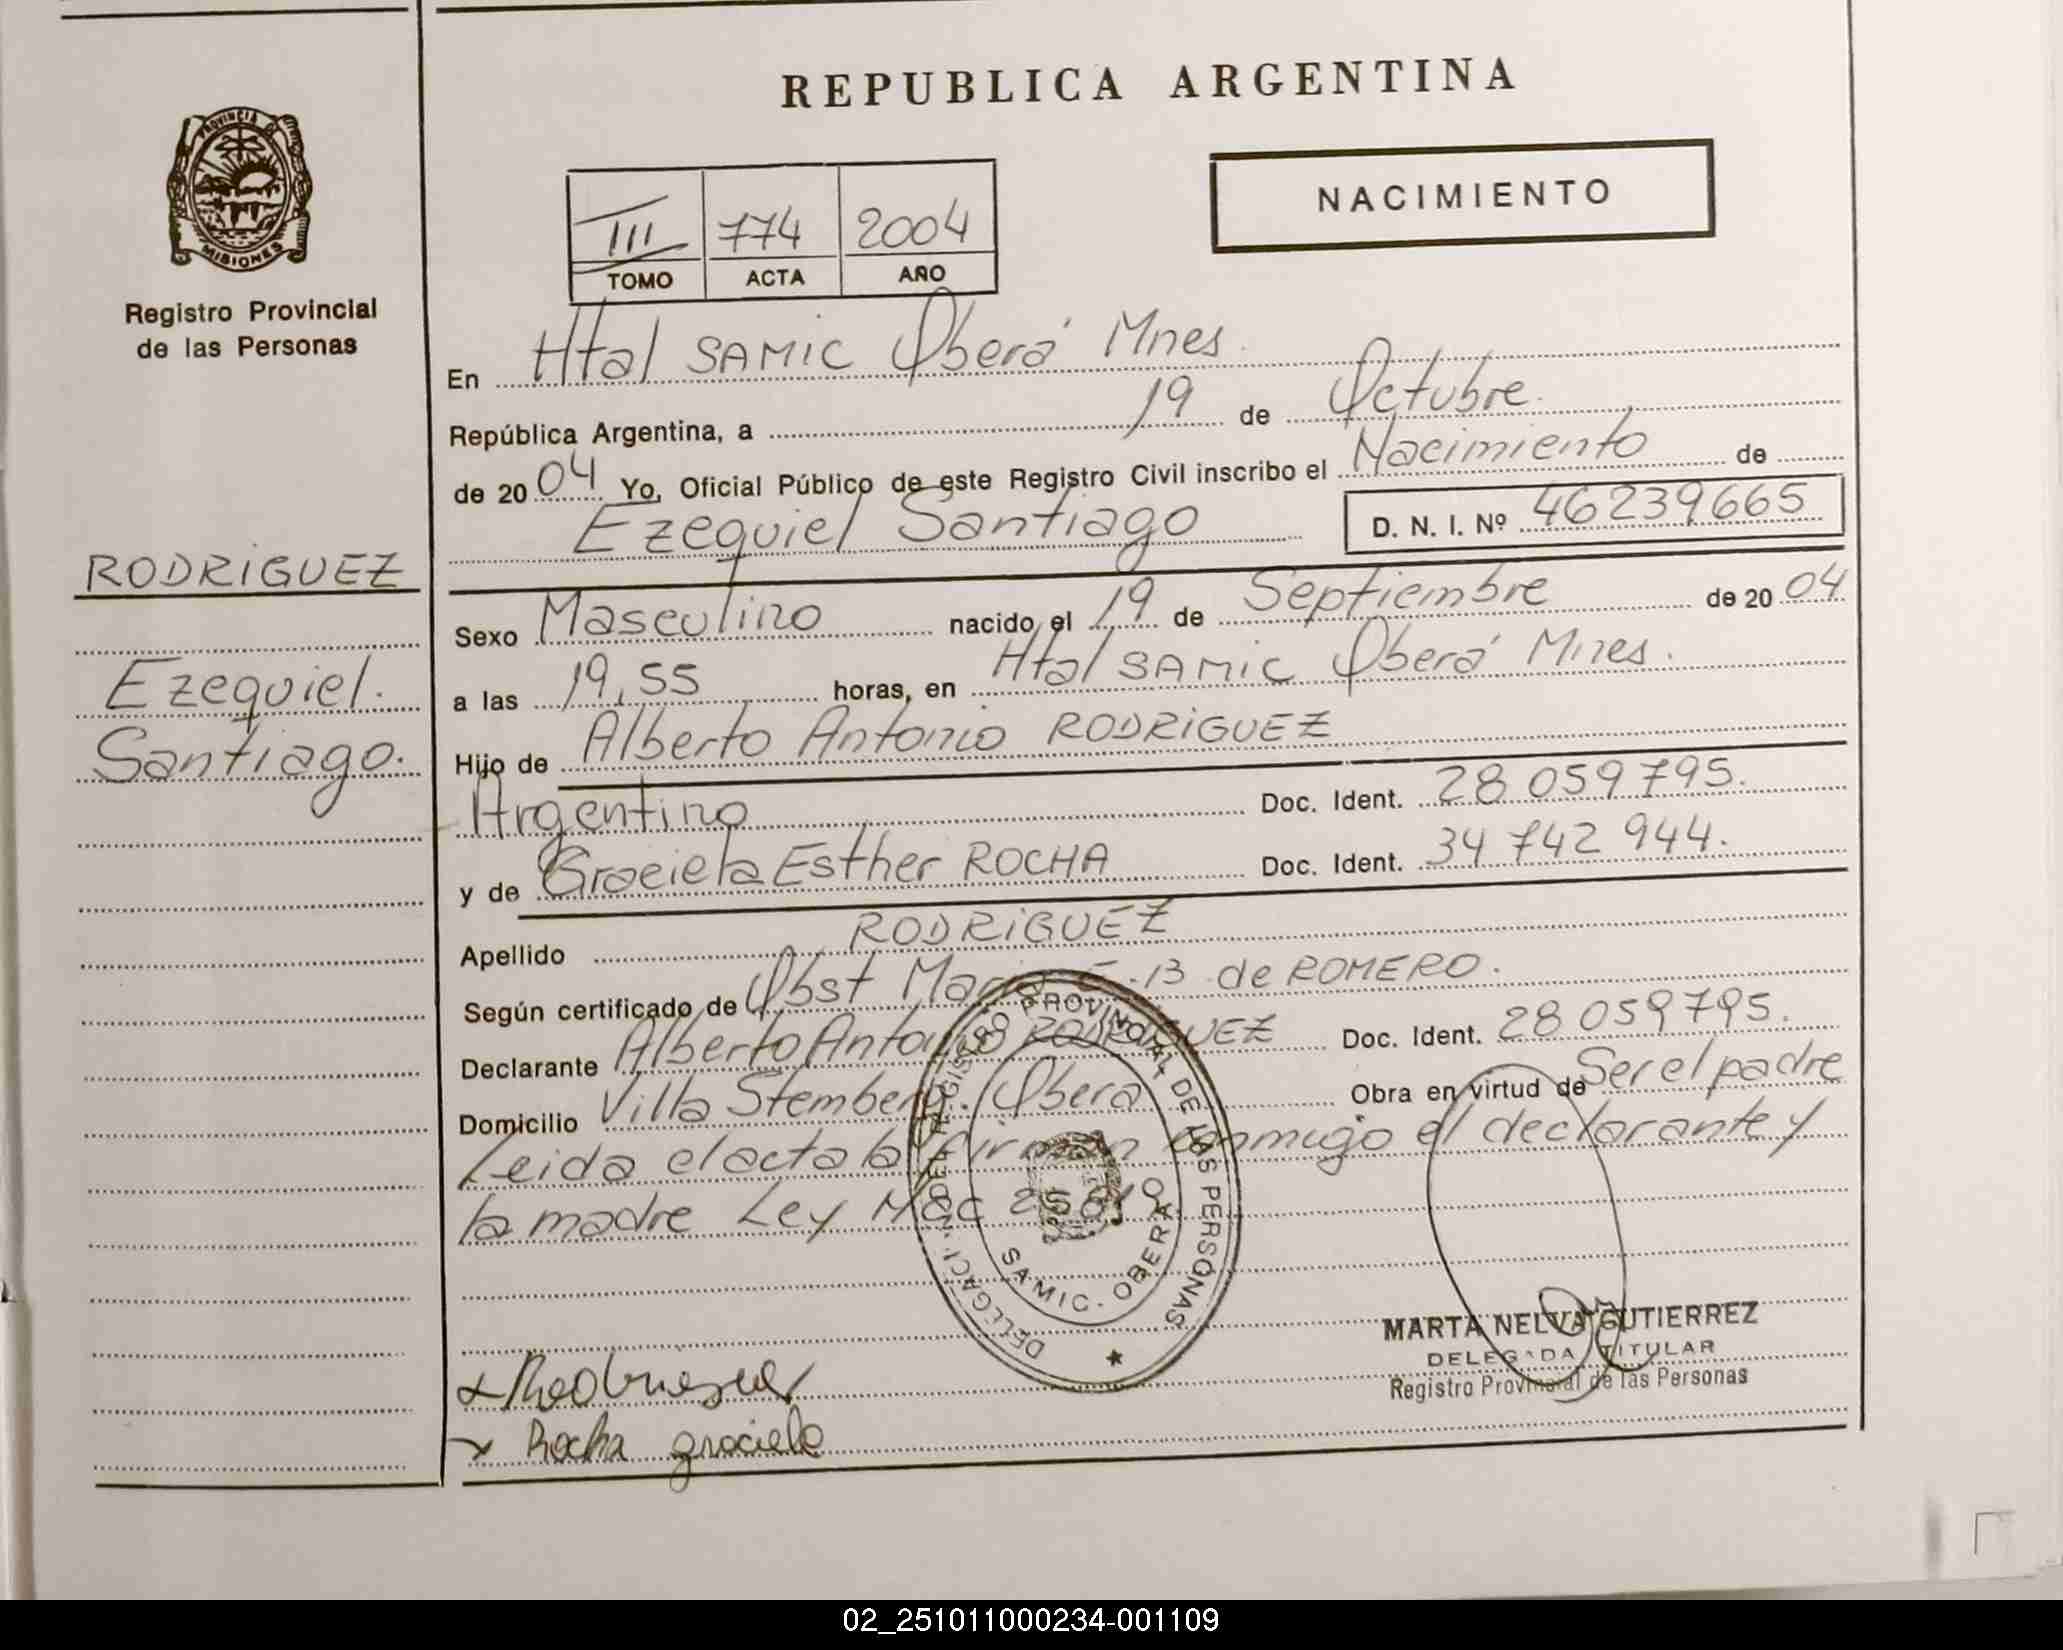 REPUBLICA ARGENTINA
PROVINCIA DE
MISIONES
Registro Provincial
de las Personas
NACIMIENTO
III 774 2004
TOMO ACTA AÑO
En Htal SAMIC Oberá Mnes.
República Argentina, a 19 de Octubre.
de 2004 Yo, Oficial Público de este Registro Civil inscribo el Nacimiento de
Ezequiel Santiago D. N. I. Nº 46239665
RODRIGUEZ
Ezequiel.
Santiago.
Sexo Masculino nacido el 19 de Septiembre de 2004
a las 19,55 horas, en Htal SAMIC Oberá Mnes.
Hijo de Alberto Antonio RODRIGUEZ
Argentino Doc. Ident. 28 059 795.
y de Graciela Esther ROCHA Doc. Ident. 34 742 944.
Apellido RODRIGUEZ
Según certificado de Obst Maria E. B de ROMERO.
Declarante Alberto Antonio RODRIGUEZ Doc. Ident. 28 059 795.
Domicilio Villa Stemberg. Oberá Obra en virtud de Ser el padre
Leida el acta la firman conmigo el declarante y
la madre Ley Nac
REGISTRO PROVINCIAL DE LAS PERSONAS
SAMIC. OBERA
MARTA NELVA GUTIERREZ
DELEGADA TITULAR
Registro Provincial de las Personas
Rocha graciela
02_251011000234-001109